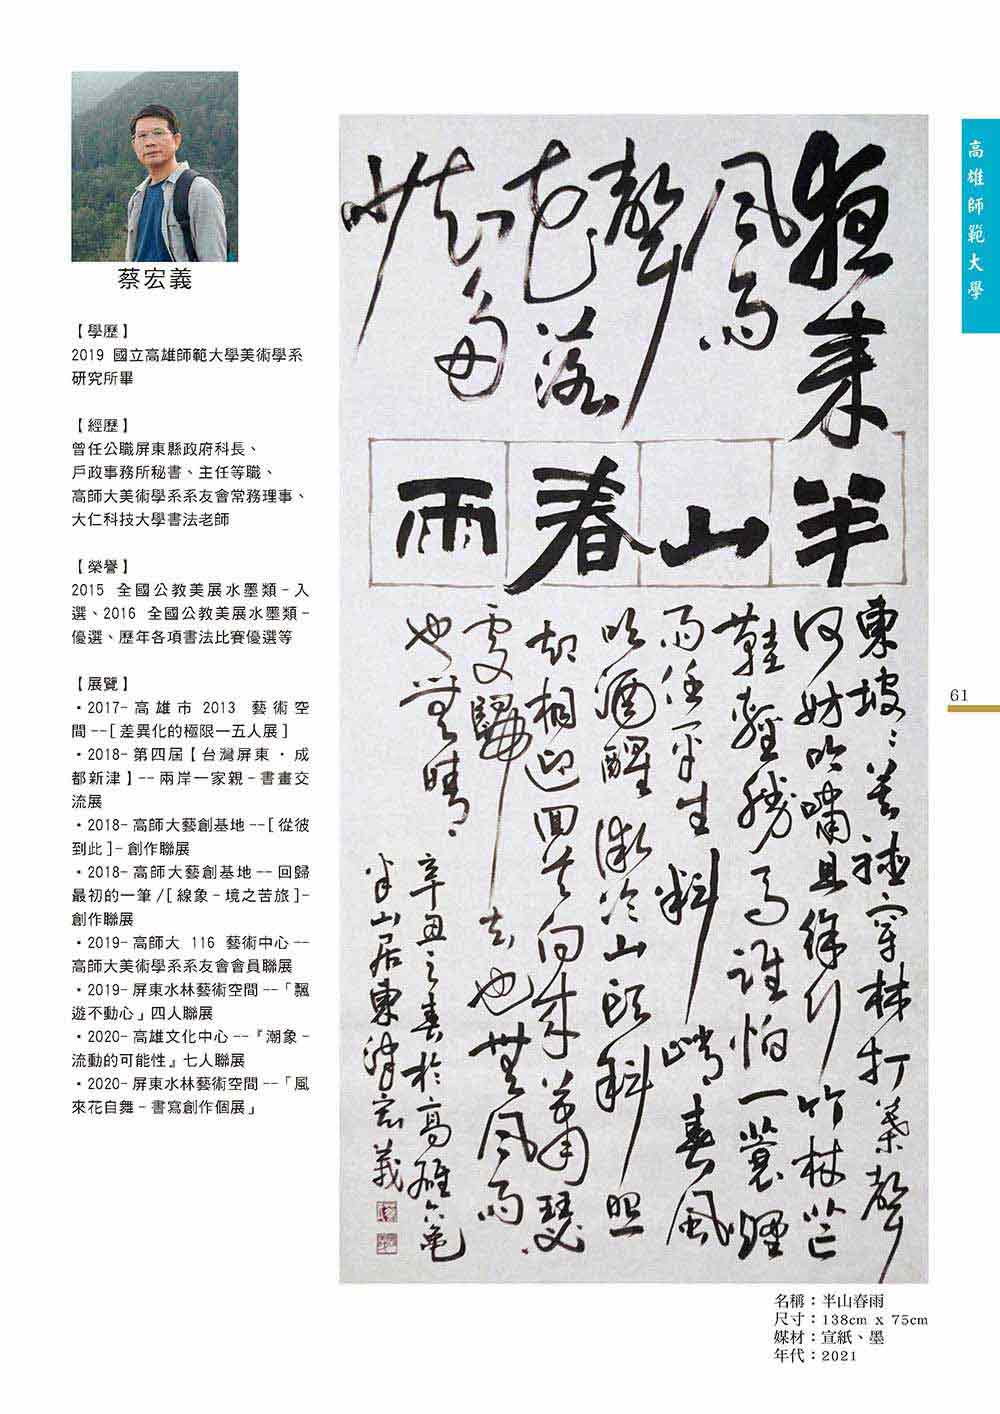 高雄師範大學
蔡宏義
【學歷】
2019 國立高雄師範大學美術學系
研究所畢
【經歷】
曾任公職屏東縣政府科長、
戶政事務所秘書、主任等職、
高師大美術學系系友會常務理事、
大仁科技大學書法老師
【榮譽】
2015 全國公教美展水墨類–入
選、2016 全國公教美展水墨類–
優選、歷年各項書法比賽優選等
【展覽】
・2017–高雄市 2013 藝術空
間 --[差異化的極限一五人展]
・2018–第四屆【台灣屏東・成
都新津】-- 兩岸一家親–書畫交
流展
・2018–高師大藝創基地 --[從彼
到此]–創作聯展
・2018–高師大藝創基地 -- 回歸
最初的一筆 /[線象–境之苦旅]–
創作聯展
・2019–高師大 116 藝術中心 --
高師大美術學系系友會會員聯展
・2019–屏東水林藝術空間 --「飄
遊不動心」四人聯展
・2020–高雄文化中心 --『潮象–
流動的可能性』七人聯展
・2020–屏東水林藝術空間 --「風
來花自舞–書寫創作個展」
夜來
風雨
聲
花落
知多
少
半山春雨
東坡:莫聽穿林打葉聲
何妨吟嘯且徐行竹杖芒
鞋輕勝馬誰怕一蓑煙
雨任平生料峭春風
吹酒醒微冷山頭斜照
卻相迎回首向來蕭瑟
處歸去也無風雨
也無晴
辛丑之春於高雄六龜
半山居東津宏義
61
名稱：半山春雨
尺寸：138cm x 75cm
媒材：宣紙、墨
年代：2021